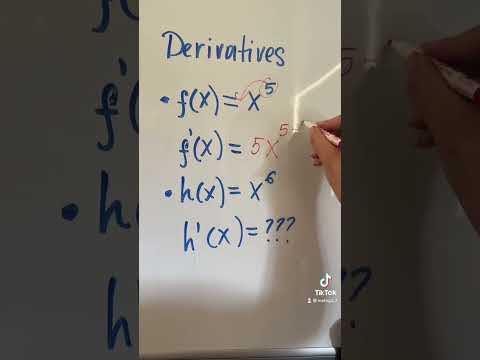 Derivatives
• f(x) = x⁵
f'(x) = 5x⁵⁻
• h(x) = x⁶
h'(x) = ???
TikTok